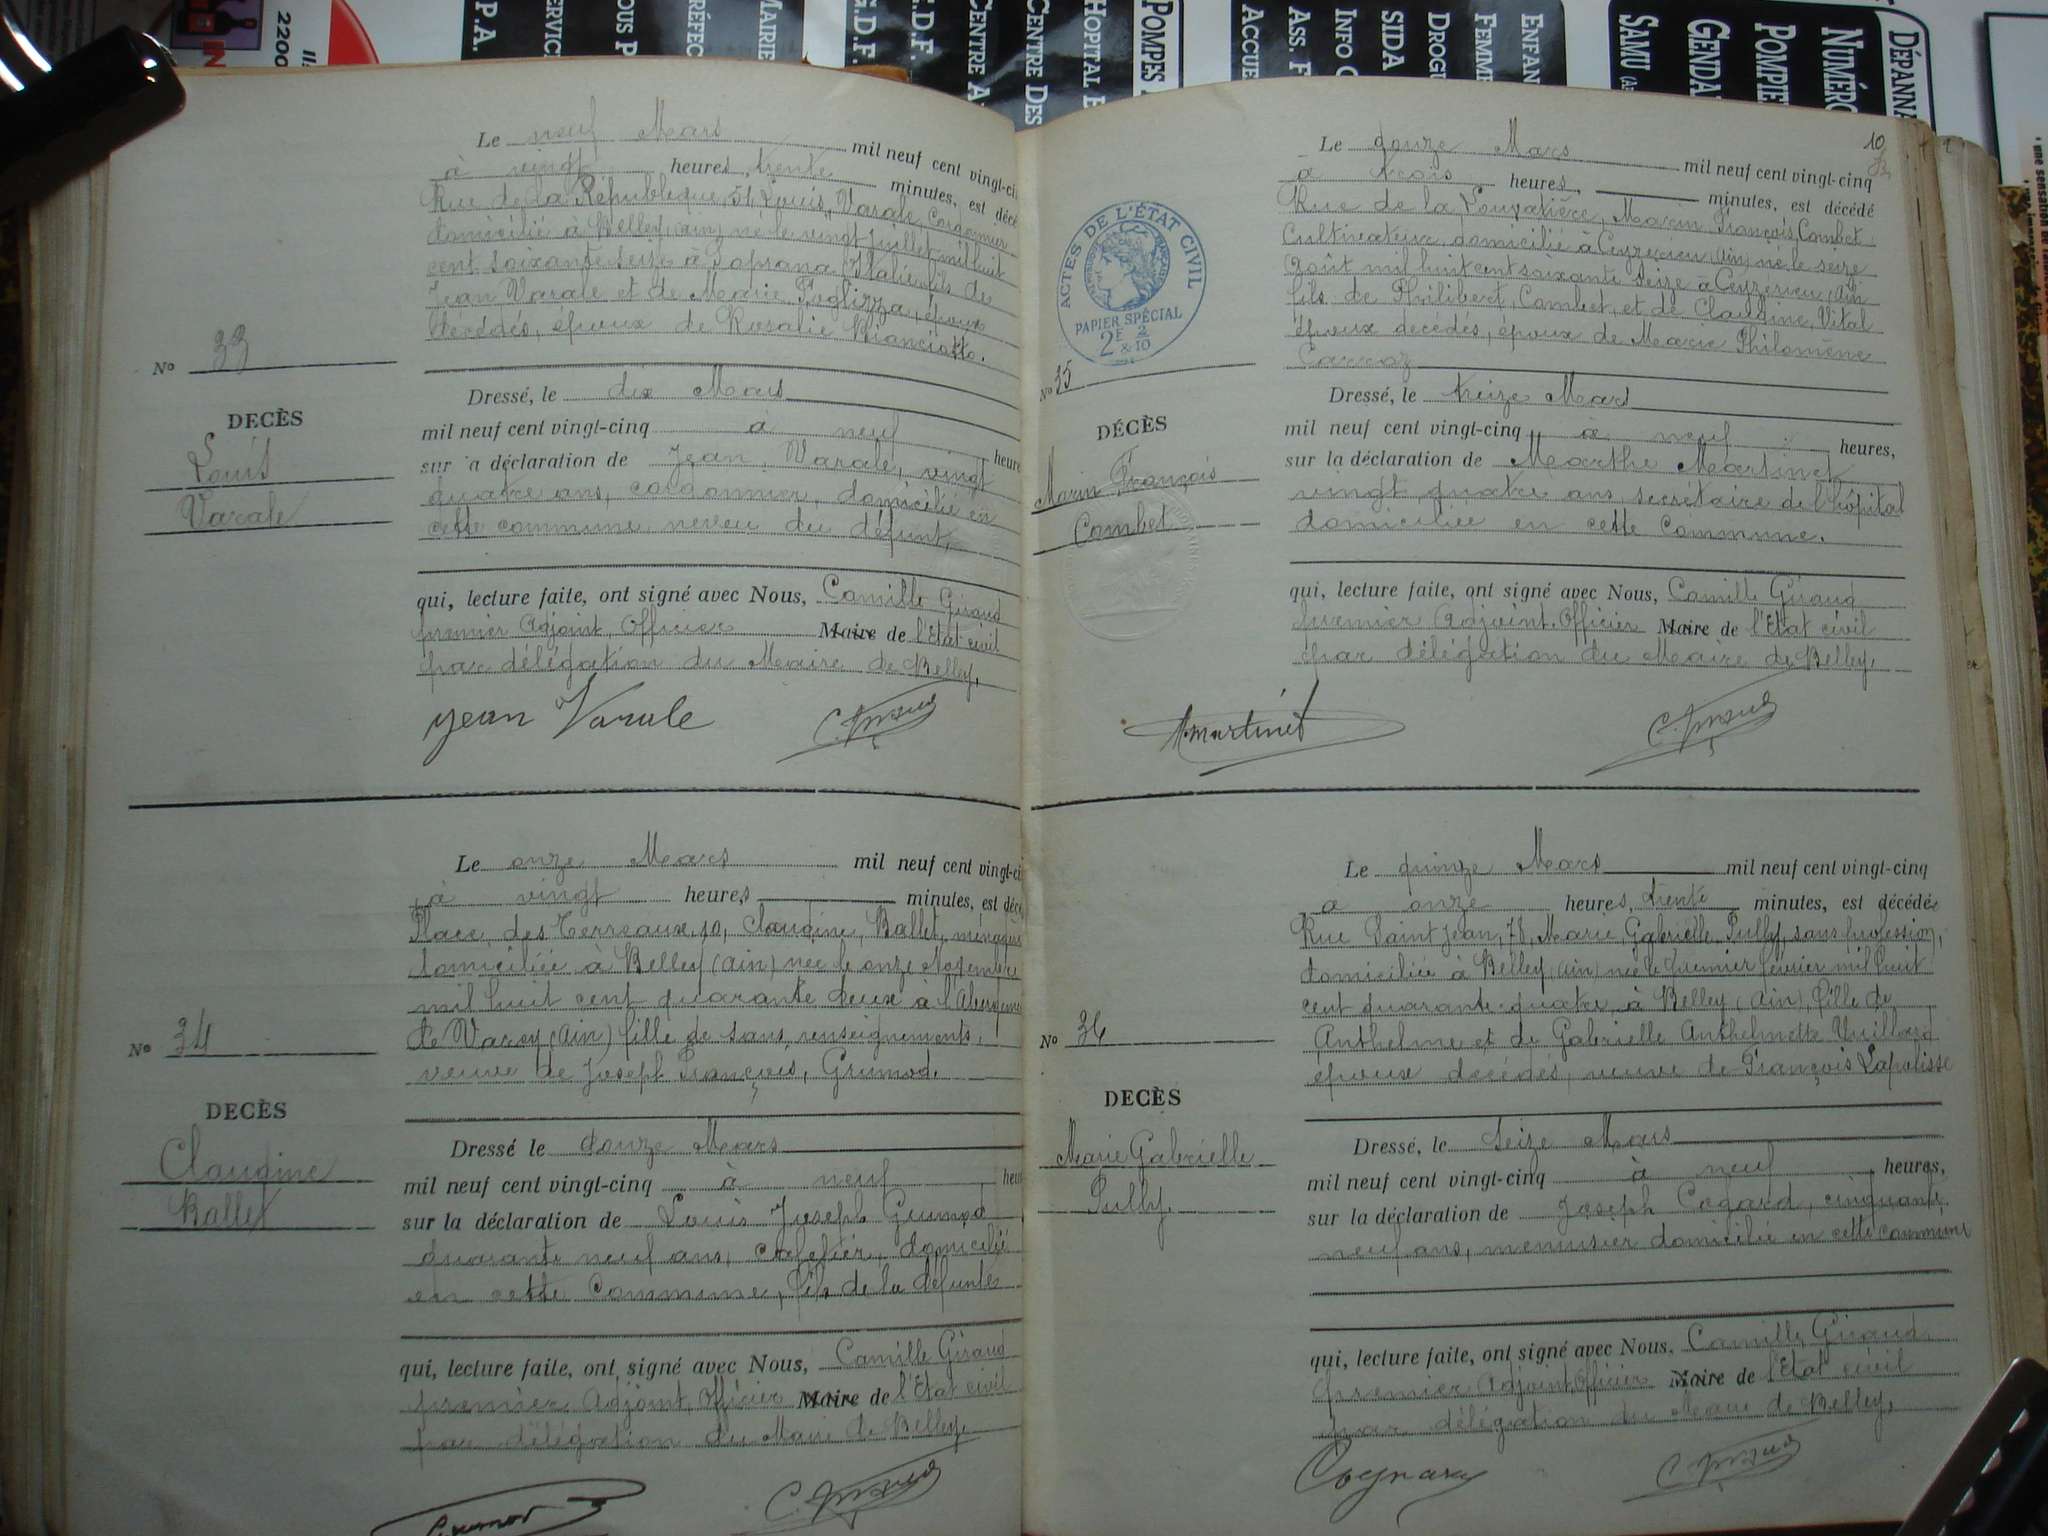 Le neuf Mars mil neuf cent vingt-ci
à vingt heures, trente minutes, est décé
Rue de la République, 51, Louis, Varale, Cordonnier
domicilié à Belley (Ain) né le vingt juillet mil huit
cent soixante seize à (Italie) fils de
Jean Varale et de Marie époux
décédés, époux de Rosalie Bianciotto.
No 33
DECÈS
Louis
Varale
Dressé, le dix Mars
mil neuf cent vingt-cinq à neuf heure
sur a déclaration de Jean Varale, vingt
quatre ans, cordonnier, domicilié en
cette commune, neveu du défunt,
qui, lecture faite, ont signé avec Nous, Camille Giraud
premier Adjoint, Officier Maire de l'Etat civil
par délégation du Maire de Belley,
Jean Varale
C. Giraud
Le onze Mars mil neuf cent vingt-ci
à vingt heures, minutes, est décé
Place des Terreaux, 10, Claudine, Ballet, ménagè
domiciliée à Belley (Ain) née le onze Novembre
mil huit cent quarante deux à l'Abergeme
de Varey (Ain) fille de sans renseignements,
veuve de Joseph François, Grumod.
No 34
DECÈS
Claudine
Ballet
Dressé le douze Mars
mil neuf cent vingt-cinq à neuf heu
sur la déclaration de Louis Joseph Grumod
quarante neuf ans, domicilié
en cette Commune, fils de la défunte
qui, lecture faite, ont signé avec Nous, Camille Giraud
premier Adjoint, Officier Maire de l'Etat civil
par délégation du Maire de Belley,
Grumod
C. Giraud
10
Le douze Mars mil neuf cent vingt-cinq
à trois heures, minutes, est décédé
Rue de la Louvatière, Marin François, Combet
Cultivateur, domicilié à Ceyzerieu (Ain) né le seize
Août mil huit cent soixante seize à Ceyzerieu (Ain
fils de Philibert, Combet, et de Claudine, Vital
époux décédés, époux de Marie Philomène
Carraz
ACTES DE L'ÉTAT CIVIL
PAPIER SPÉCIAL
2F & 2/10
No 35
DÉCÈS
Marin François
Combet
Dressé, le treize Mars
mil neuf cent vingt-cinq à neuf heures,
sur la déclaration de Marthe Martinet
vingt quatre ans, secrétaire de l'hôpital
domiciliée en cette Commune.
qui, lecture faite, ont signé avec Nous, Camille Giraud
premier Adjoint. Officier Maire de l'Etat civil
par délégation du Maire de Belley,
M martinet
C. Giraud
Le quinze Mars mil neuf cent vingt-cinq
à onze heures, trente minutes, est décédée
Rue Saint Jean, 78, Marie, Gabrielle Sully, sans profession,
domiciliée à Belley (Ain) née le premier février mil huit
cent quarante-quatre à Belley (Ain), fille de
Anthelme et de Gabrielle Anthelmette Vuillard
époux décédés, veuve de François Lapalisse
No 36
DECÈS
Marie Gabrielle
Sully
Dressé, le seize Mars
mil neuf cent vingt-cinq à neuf heures,
sur la déclaration de Joseph Cognard, cinquante
neuf ans, menuisier domicilié en cette commune
qui, lecture faite, ont signé avec Nous, Camille Giraud
premier Adjoint, Officier Maire de l'Etat civil
par délégation du Maire de Belley,
Cognard
C. Giraud
P.A.
ERVIC
OUS P
RÉFEC
MAIRIE
G.D.F.
E.D.F.
CENTRE A
CENTRE DES
HOPITAL
POMPES
ACCUE
ASS. F
INFO
SIDA
DROGU
FEMME
ENFAN
SAMU
GENDA
POMPIE
NUMÉRO
DÉPANNA
2200
IN